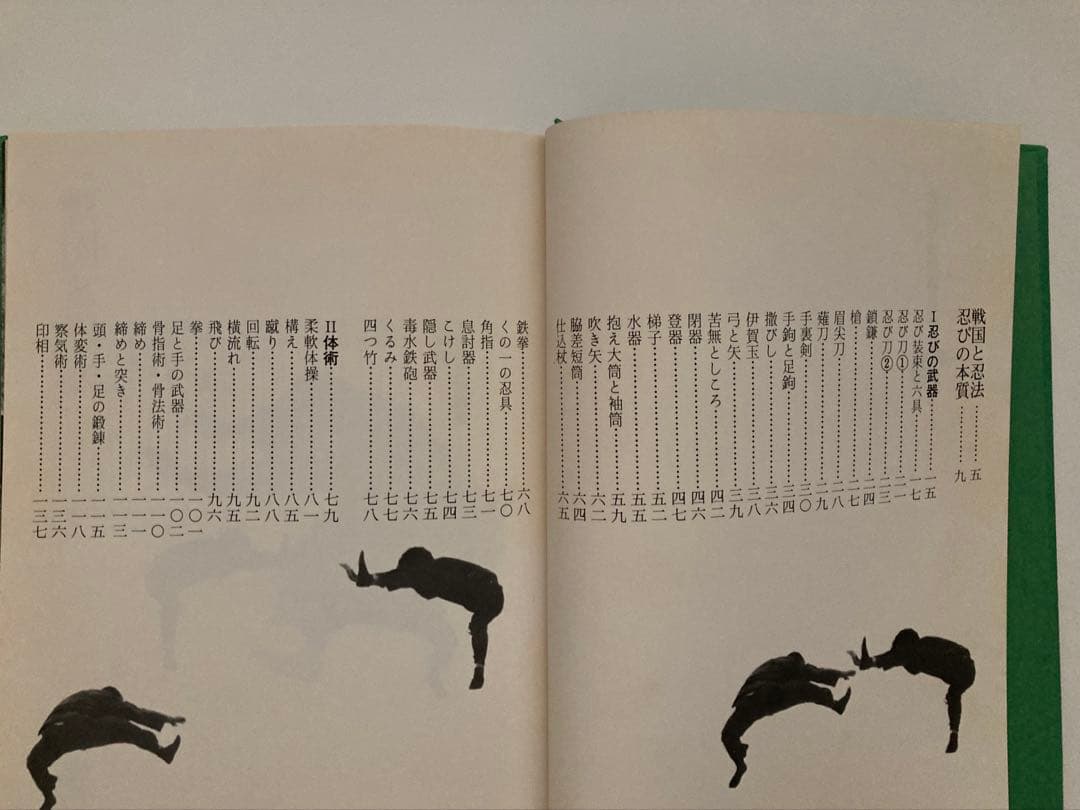 戦国と忍法……五
忍びの本質……九
Ⅰ忍びの武器……一五
忍び装束と六具……一七
忍び刀①……二一
忍び刀②……二三
鎖鎌……二四
槍……二七
眉尖刀……二八
薙刀……二九
手裏剣……三〇
手鉤と足鉤……三四
撒びし……三六
伊賀玉……三八
弓と矢……三九
苦無としころ……四二
閉器……四六
登器……四七
梯子……五二
水器……五五
抱え大筒と袖筒……五九
吹き矢……六二
脇差短筒……六四
仕込杖……六五
鉄拳……六八
くの一の忍具……七〇
角指……七一
息討器……七三
こけし……七四
隠し武器……七五
毒水鉄砲……七六
くるみ……七七
四つ竹……七八
Ⅱ体術……七九
柔軟体操……八一
構え……八五
蹴り……八八
回転……九二
横流れ……九五
飛び……九六
拳……一〇一
足と手の武器……一〇二
骨指術・骨法術……一一〇
締め……一一一
締めと突き……一一三
頭・手・足の鍛錬……一一五
体変術……一一八
察気術……一三六
印相……一三七